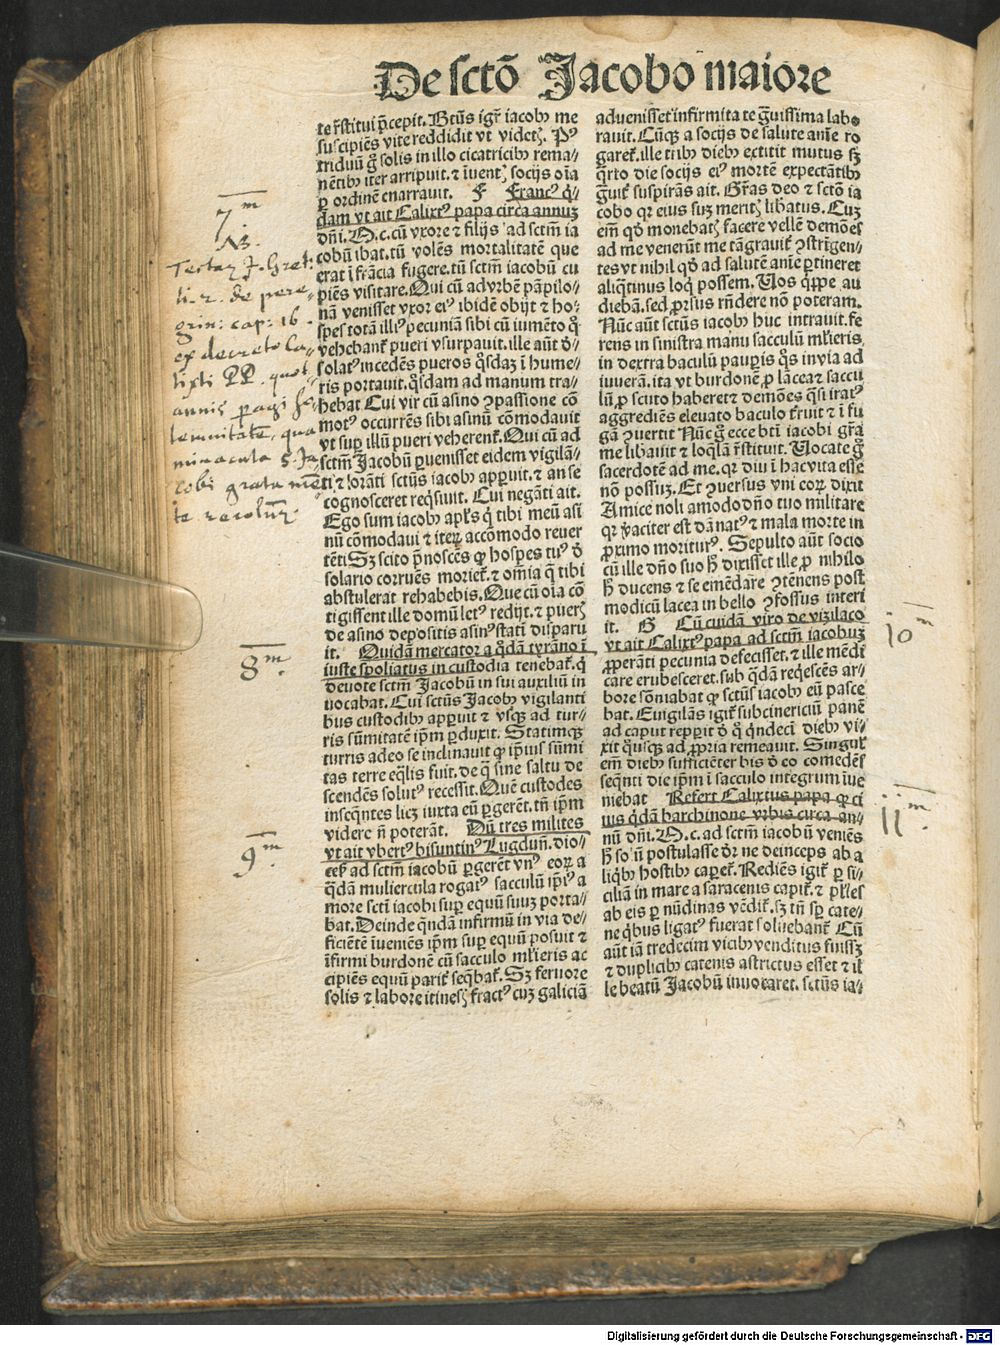 De sctō Jacobo maiore
te rstitui p̄cepit. Btūs igr̄ iacobꝰ me
suscipiēs vite reddidit vt videtꝫ. Pꝰ
triduū g̊ solis in illo cicatricibꝰ rema⸗
nētibꝰ iter arripuit. ⁊ īuentꝭ socijs oīa
ꝑ ordinē enarrauit. F Francꝰ q̄⸗
dam vt ait Calixtꝰ papa circa annuꝫ
dn̄i. M. c. cū vxore ⁊ filijs ad sctm̄ ia
cobū ibat. tū volēs mortalitatē que
erat ī frācia fugere. tū sctm̄ iacobū cu
piēs visitare. Qui cū ad vrbē pāpilo⸗
nā venisset vxor eiꝰ ibidē obijt ⁊ ho⸗
spes totā illiꝰ pecuniā sibi cū iumēto q̊
vehebant̄ pueri vsurpauit. ille aūt d̄⸗
solatꝰ incedēs pueros q̊sdaꝫ ī hume⸗
ris portauit. q̊sdam ad manum tra⸗
hebat Cui vir cū asino ꝯpassione cō
motꝰ occurrēs sibi asinū cōmodauit
vt suꝑ illū pueri veherent̄. Qui cū ad
sctm̄ Jacobū ꝑuenisset eidem vigilā⸗
ti ⁊ orāti sctūs iacobꝰ apꝑuit. ⁊ an se
cognosceret reqsiuit. Cui negāti ait.
Ego sum iacobꝰ apl̄s q̄ tibi meū asi
nū cōmodaui ⁊ iterꝝ accōmodo reuer
tēti Sꝫ scito p̄noscēs ꝙ hospes tuꝰ d̄
solario corruēs moriet̄. ⁊ omīa q̄ tibi
abstulerat rehabebis. Que cū oīa cō
tigissent ille domū letꝰ redijt. ⁊ puerꝭ
de asino depositis asinꝰ statī disparu
it. Quidā mercator a q̊dā tyrāno ī
iuste spoliatus in custodia tenebat̄. q̄
deuote sctm̄ Jacobū in sui auxiliū in
uocabat. Cui sctūs Jacobꝰ vigilanti
bus custodibꝰ apꝑuit ⁊ vsqꝫ ad tur⸗
ris sūmitatē ip̄m ꝑduxit. Statimqꝫ
turris adeo se inclinauit ꝙ ip̄ius sūmi
tas terre eq̄lis fuit. de q̄ sine saltu de
scendēs solutꝰ recessit. Quē custodes
inseq̄ntes licꝫ iuxta eū ꝑgerēt. tn̄ ip̄m
videre n̄ poterāt. Dū tres milites
vt ait vbertꝰ bisuntinꝰ Lugduñ. dio⸗
ceꝭ ad sctm̄ iacobū ꝑgerēt vnꝰ eorꝝ a
q̊dā muliercula rogatꝰ sacculū ip̄iꝰ a
more scti iacobi suꝑ equū suuꝫ porta⸗
bat. Deinde q̊ndā infirmū in via de⸗
ficiētē īueniēs ip̄m suꝑ equū posuit ⁊
īfirmi burdonē cū sacculo ml̄ieris ac
cipiēs equū parit̄ seq̄bat̄. Sꝫ feruore
solis ⁊ labore itinerꝭ fractꝰ cuꝫ galiciā
aduenisset infirmitate g̊uissima labo
rauit. Cūqꝫ a socijs de salute anīe ro
garet̄. ille tribꝰ diebꝰ extitit mutus sꝫ
q̊rto die socijs eiꝰ mortē expectātibꝰ
g̊uit̄ suspirās ait. Gr̄as deo ⁊ sctō ia
cobo qꝛ eius suꝫ meritꝭ libatus. Cuꝫ
em̄ qd̄ monebatꝭ facere vellē demōes
ad me venerūt me tāg̊uit̄ ꝯstrīgen⸗
tes vt nihil qd̄ ad salutē anīe ꝑtineret
aliq̊tinus loq̄ possem. Uos q̄ꝑpe au
diebā. sed ꝓrsus rn̄dere nō poteram.
Nūc aūt sctūs iacobꝰ huc intrauit. fe
rens in sinistra manu sacculū ml̄ieris,
in dextra baculū pauꝑis q̊s in via ad
iuuerā. ita vt burdonē ꝓ lācea ⁊ saccu
lū ꝓ scuto haberet ⁊ demōes q̊si iratꝰ
aggrediēs eleuato baculo t̄ruit ⁊ ī fu
gā ꝯuertit Nūc g̊ ecce bt̄i iacobi gr̄a
me libauit ⁊ loq̄lā r̄stituit. Uocate g̊
sacerdotē ad me. qꝛ diu ī hac vita esse
nō possuꝫ. Et ꝯuersus vni eorꝝ dixit
Amice noli amodo dn̄o tuo militare
qꝛ v̄aciter est dānatꝰ ⁊ mala morte in
ꝓximo moriturꝰ. Sepulto aūt socio
cū ille dn̄o suo h̄ dixisset ille ꝓ nihilo
h̄ ducens ⁊ se emēdare ꝯtēnens post
modicū lacea in bello ꝯfossus interi
it. G Cū cuidā viro de vizilaco
vt ait Calixtꝰ papa ad sctm̄ iacobuꝫ
ꝓꝑāti pecunia defecisset. ⁊ ille mēdi
care erubesceret. sub q̊dā reqescēs ar⸗
bore sōniabat ꝙ sctūs iacobꝰ eū pasce
bat. Euigilās igit̄ subcinericiū panē
ad caput reperit d̄ q̊ q̄ndeci diebꝰ vi⸗
xit q̊usqꝫ ad ꝓpria remeauit. Singul̄
em̄ diebꝰ sufficiēter bis d̄ eo comedēs
seq̄nti die ip̄m ī sacculo integrum īue
niebat Refert Calixtus papa ꝙ ci
uis q̊dā barchinone vrbis circa an⸗
nū dn̄i. M. c. ad sctm̄ iacobū veniēs
h̄ solū postulasse d̄r ne deinceps ab a
liqbꝰ hostibꝰ caꝑet̄. Rediēs igit̄ ꝑ si⸗
ciliā in mare a saracenis capit̄. ⁊ pl̄ies
ab eis ꝑ nūdinas vēdit̄. sꝫ tn̄ sꝑ cate⸗
ne q̄bus ligatꝰ fuerat soluebant̄ Cū
aūt iā tredecim vicibꝰ venditus fuissꝫ
⁊ duplicibꝰ catenis astrictus esset ⁊ il
le beatū Jacobū inuocaret. sctūs ia⸗
7m
NB.
grin: cap: 16.
ex decreto Ca⸗
lixti PP. quot
annis peragi
lemnitatē, qua
miracula S. Ja⸗
cobi grata mē
te recolunt.
8m.
9m.
10m
11m.
Digitalisierung gefördert durch die Deutsche Forschungsgemeinschaft - DFG